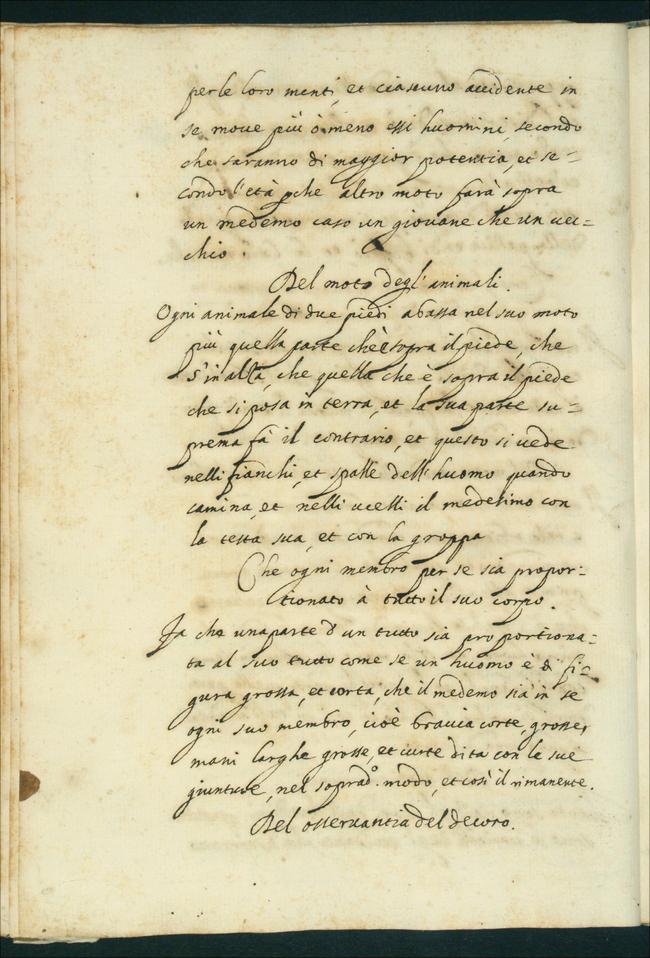 per le loro menti, et ciascuno accidente in
se moue più ò meno essi huomini, secondo
che saranno di maggior potentia, et se=
condo l'età perche altro moto farà sopra
un medemo caso un giouane che un uec=
chio.
Del moto degl'animali.
Ogni animale di due piedi abassa nel suo moto
più quella parte ch'è sopra il piede, che
s'inalza, che quella che è sopra il piede
che si posa in terra, et la sua parte su=
prema fà il contrario, et questo si uede
nelli fianchi, et spalle dell'huomo quando
camina, et nelli ucelli il medesimo con
la testa sua, et con la groppa
Che ogni membro per se sia propor=
tionato à tutto il suo corpo.
Fa che una parte d'un tutto sia proportiona=
ta al suo tutto come se un huomo è di fi=
gura grossa, et corta, che il medemo sia in se
ogni suo membro, cioè braccia corte, grosse,
mani larghe grosse, et curte dita con le sue
giunture, nel soprad.º modo, et così il rimanente.
Del osseruantia del decoro.